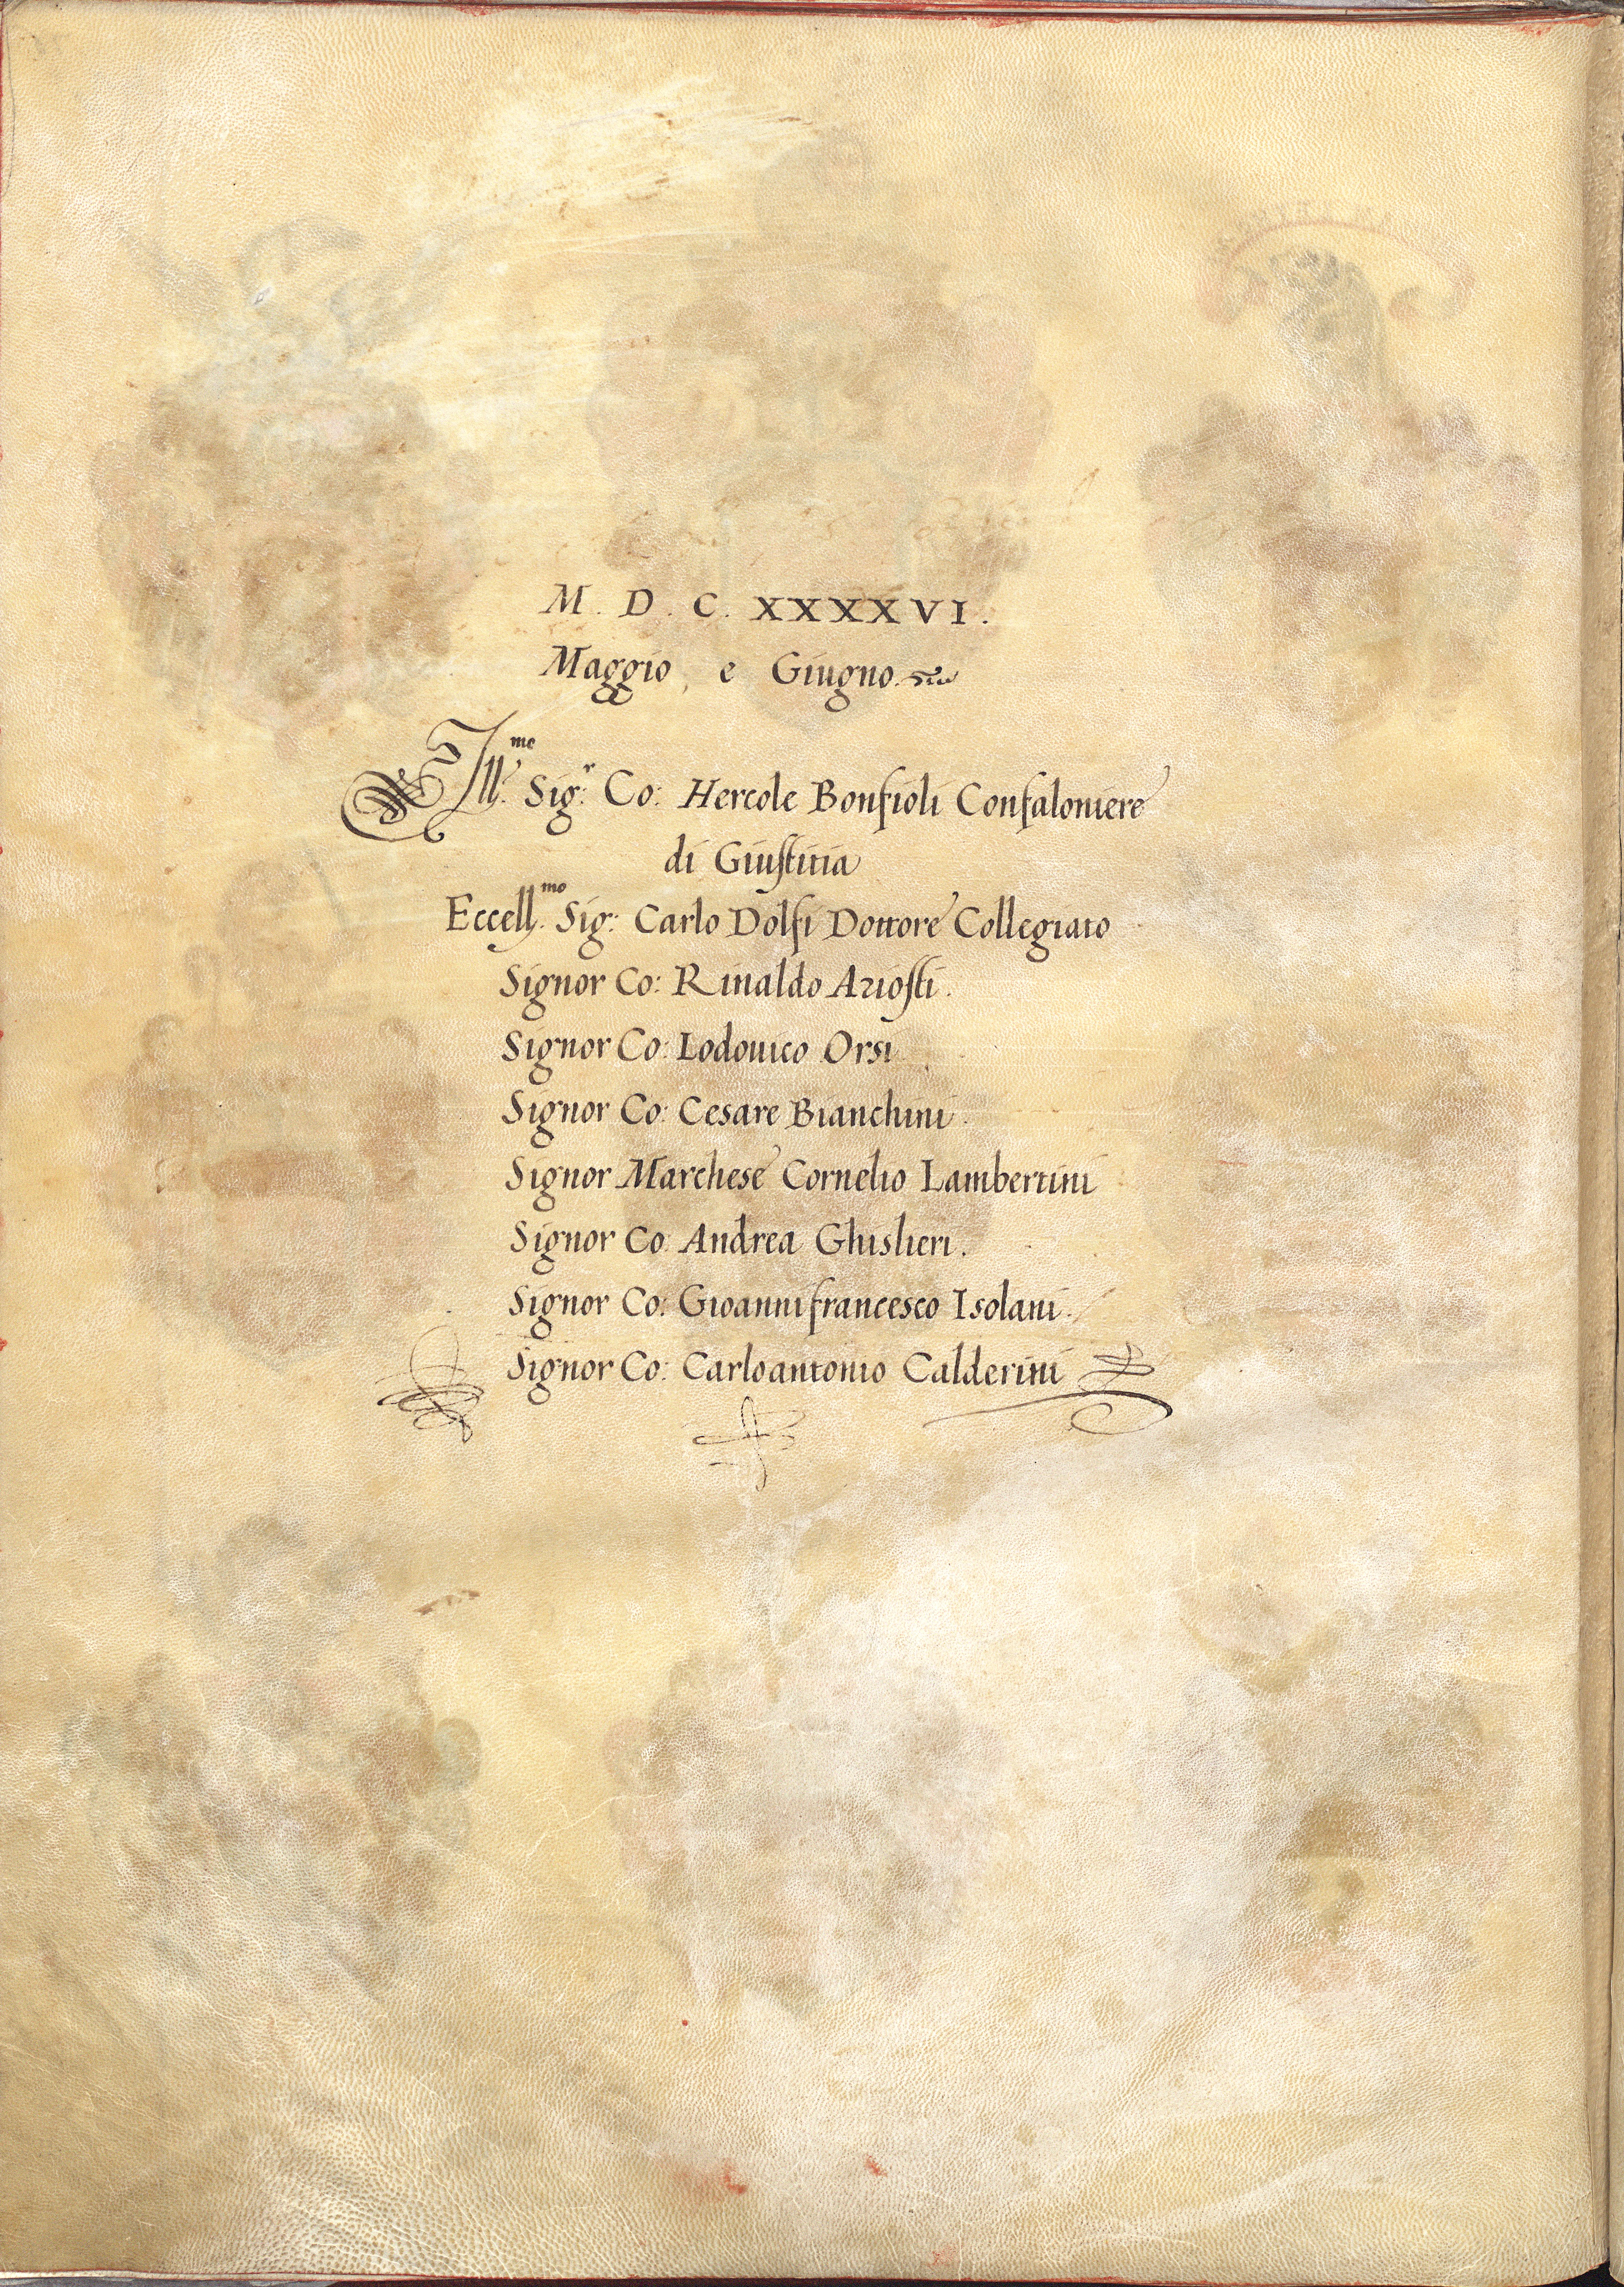 M. D. C. XXXXVI.
Maggio, e Giugno.
Ill.mo Sig.r Co: Hercole Bonfioli Confaloniere
di Giustitia
Eccell.mo Sig: Carlo Dolfi Dottore Collegiato
Signor Co: Rinaldo Ariosti.
Signor Co: Lodouico Orsi
Signor Co: Cesare Bianchini.
Signor Marchese Cornelio Lambertini
Signor Co: Andrea Ghislieri.
Signor Co: Gioannifrancesco Isolani.
Signor Co: Carloantonio Calderini